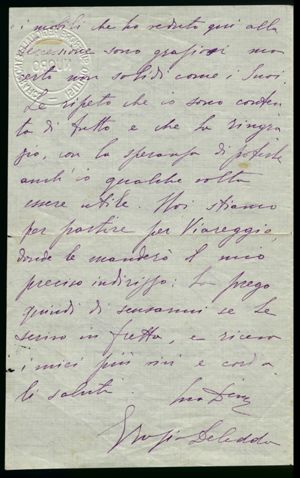 i mobili che ho veduto qui alla
secessione sono graziosi ma
certo non solidi come i Suoi.
Le ripeto che io sono conten
ta di tutto e che La ringra
zio, con la speranza di poterle
anch'io qualche volta
essere utile. Noi stiamo
per partire per Viareggio,
donde Le manderò il mio
preciso indirizzo: La prego
quindi di scusarmi se Le
scrivo in fretta, e riceva
i miei più vivi e cordia
li saluti.
Grazia Deledda